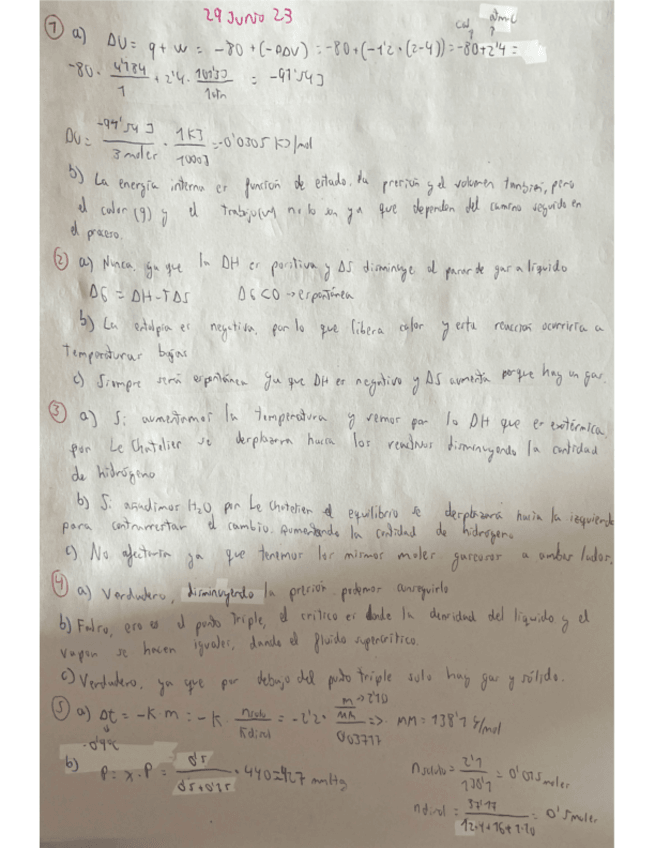 29 JUNIO 23
① a) ΔU = q + w = -80 + (-PΔV) = -80 + (-1'2 · (2-4)) = -80 + 2'4 =
-80 · 4'184/1 + 2'4 · = -91'54 J
ΔU = -91'54 J / 3 moles · 1 KJ / 1000J = -0'0305 KJ/mol
b) La energía interna es función de estado, la presión y el volumen también, pero
el calor (q) y el trabajo (w) no lo son ya que dependen del camino seguido en
el proceso.
② a) Nunca, ya que la ΔH es positiva y ΔS disminuye al pasar de gas a líquido
ΔG = ΔH-TΔS ΔG<0 → espontánea
b) La entalpía es negativa, por lo que libera calor y esta reacción ocurriría a
temperaturas bajas
c) Siempre será espontánea ya que ΔH es negativo y ΔS aumenta porque hay un gas.
③ a) Si aumentamos la temperatura y vemos por la ΔH que es exotérmica,
por Le Chatelier se desplazara hacia los reactivos disminuyendo la cantidad
de hidrógeno
b) Si añadimos H2O por Le Chatelier el equilibrio se desplazará hacia la izquierda
para contrarrestar el cambio. Aumentando la cantidad de hidrogeno
c) No afectaria ya que tenemos los mismos moles gaseosos a ambos lados.
④ a) Verdadero, disminuyendo la presión podemos conseguirlo
b) Falso, ese es el punto triple, el critico es donde la densidad del líquido y el
vapor se hacen iguales, dando el fluido supercritico.
c) Verdadero, ya que por debajo del punto triple solo hay gas y sólido.
⑤ a) Δt = -K · m = -K · = -2'2 · => MM = 138'1 g/mol
b) P = x · P = 0'5 / · 440 = 427 mmHg
n soluto = 2'1 / 138'1 = 0'015 moles
n disol = 37'17 / = 0'5 moles